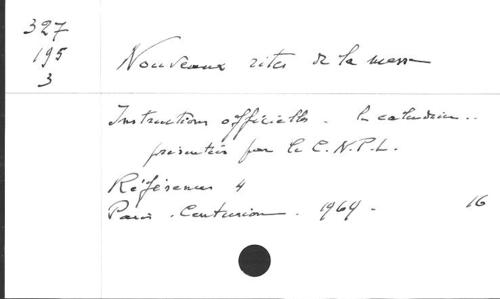 327
195
3
Nouveaux rites de la messe
Instructions officielles - le calendrier..
présentés par le C.N.P.L.
Références 4
Paris. Centurion. 1969. 16